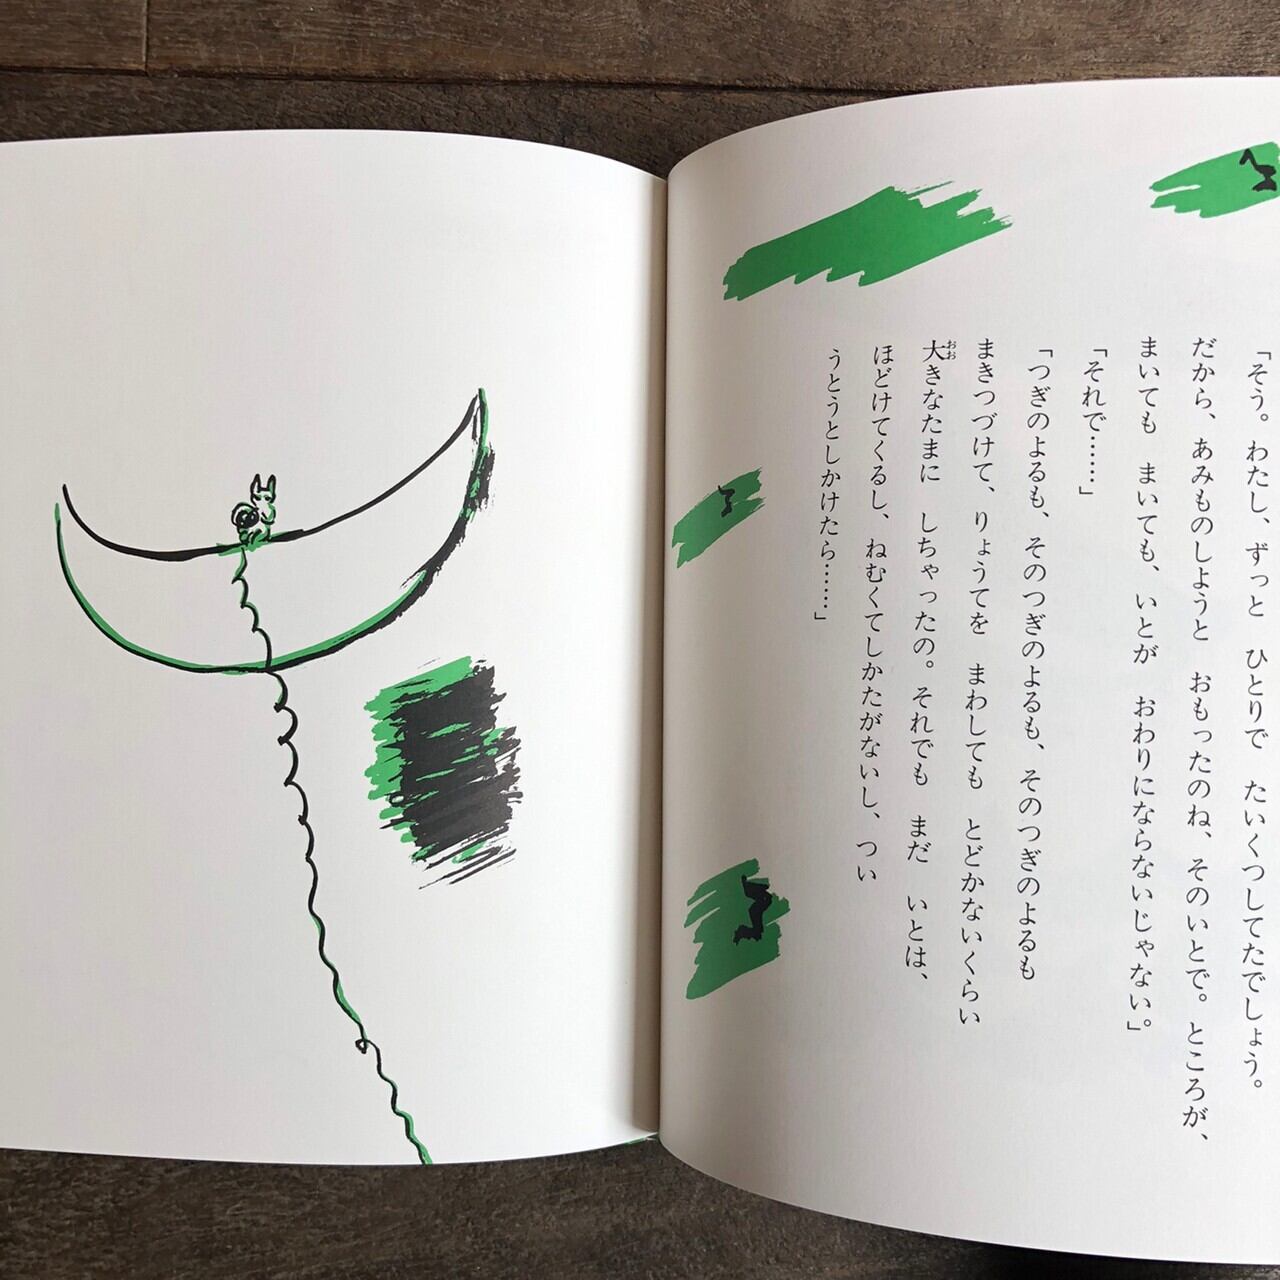 「そう。わたし、ずっと ひとりで たいくつしてたでしょう。
だから、あみものしようと おもったのね、そのいとで。ところが、
まいても まいても、いとが おわりにならないじゃない」
「それで……」
「つぎのよるも、そのつぎのよるも、そのつぎのよるも
まきつづけて、りょうてを まわしても とどかないくらい
大きなたまに しちゃったの。それでも まだ いとは、
おお
ほどけてくるし、ねむくてしかたがないし、つい
うとうとしかけたら……」